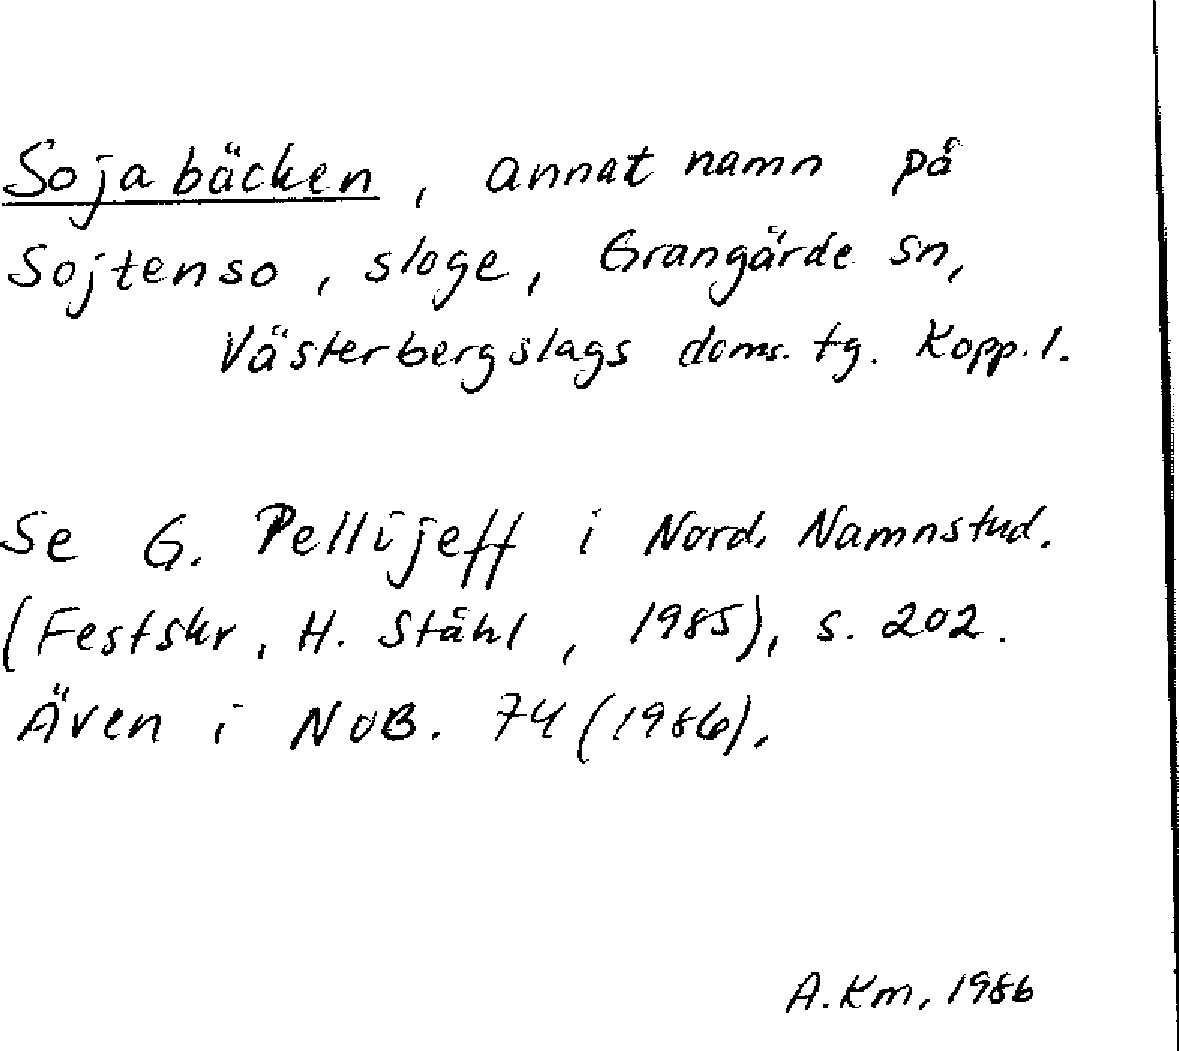 Sojabäcken, annat namn på
Sojtenso, sloge, Grangärde sn,
Västerbergslags doms. tg. Kopp. l.
Se G. Pellijeff i Nord. Namnstud.
(Festskr. H. Ståhl, 1985), s. 202.
Även i NoB. 74 (1986).
A. Km. 1986